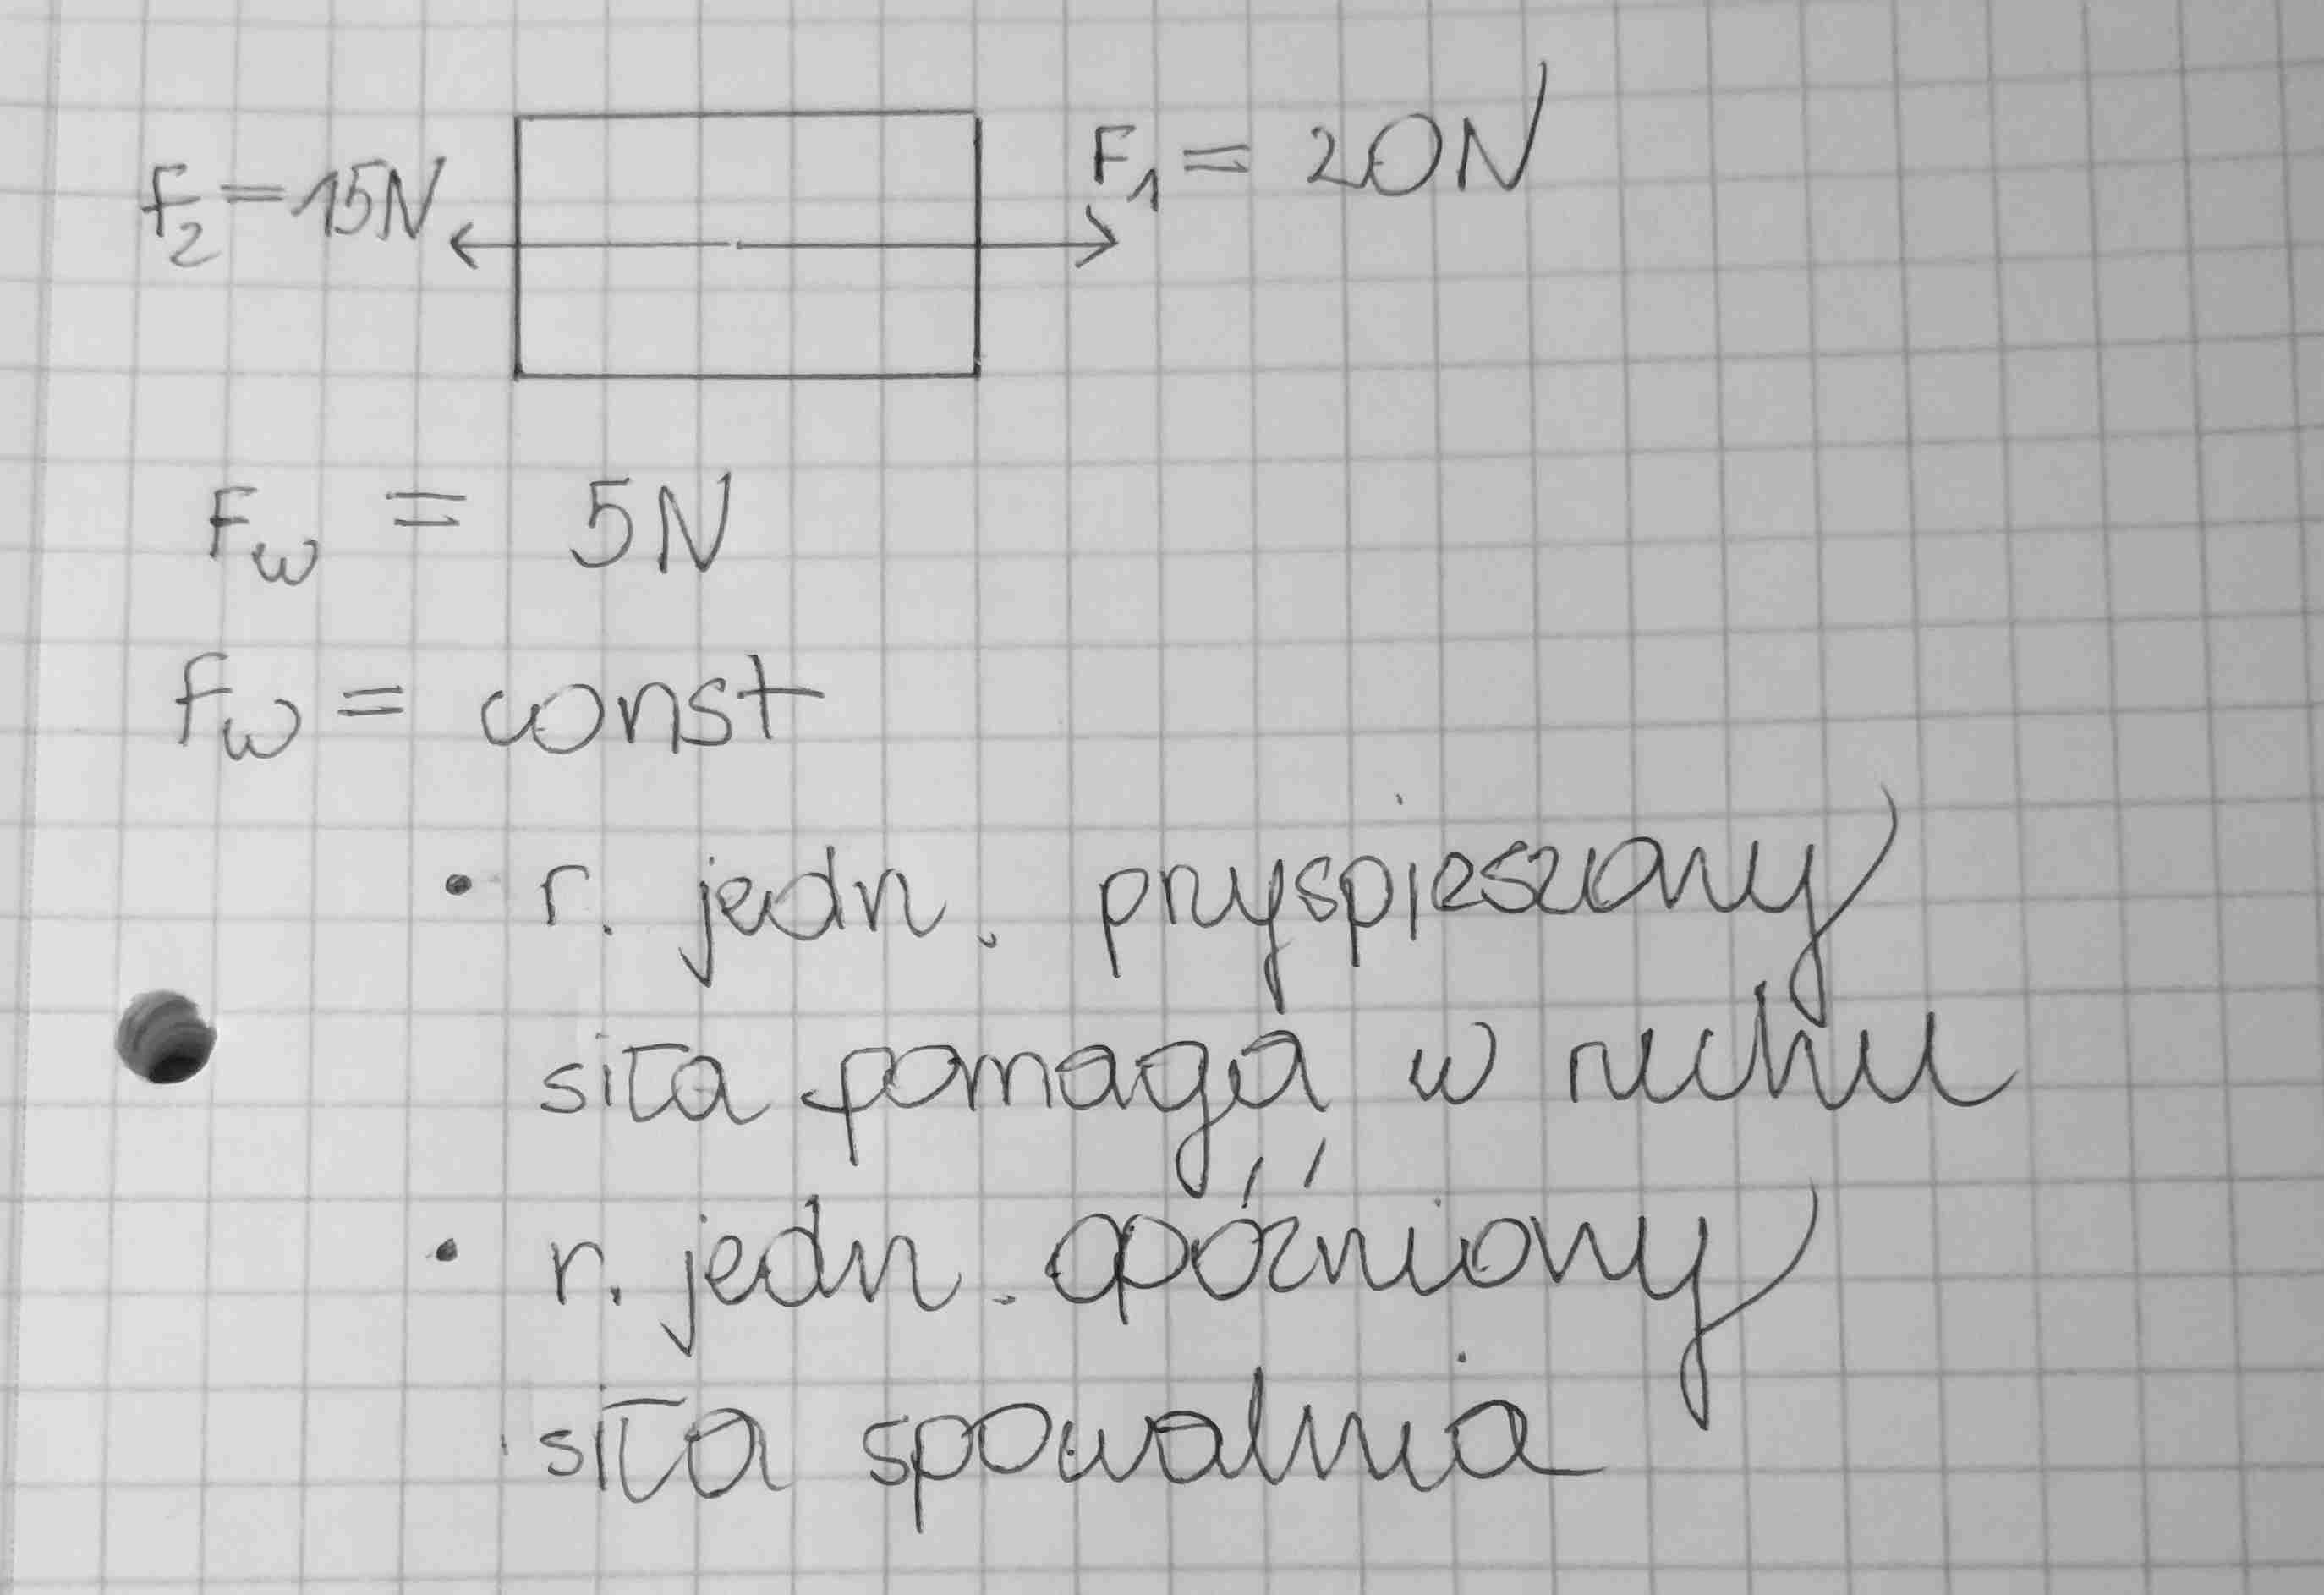 F₁ = 20N
F₂ = 15N
F_w = 5N
F_w = const
• r. jedn. przyspieszony
siła pomaga w ruchu
• r. jedn. opóźniony
siła spowalnia